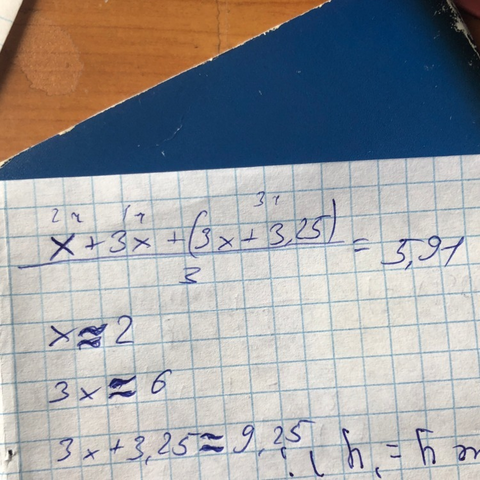 2ч 1ч 3ч
x + 3x + (3x + 3,25)
3
= 5,91
x ≈ 2
3x ≈ 6
3x + 3,25 ≈ 9,25